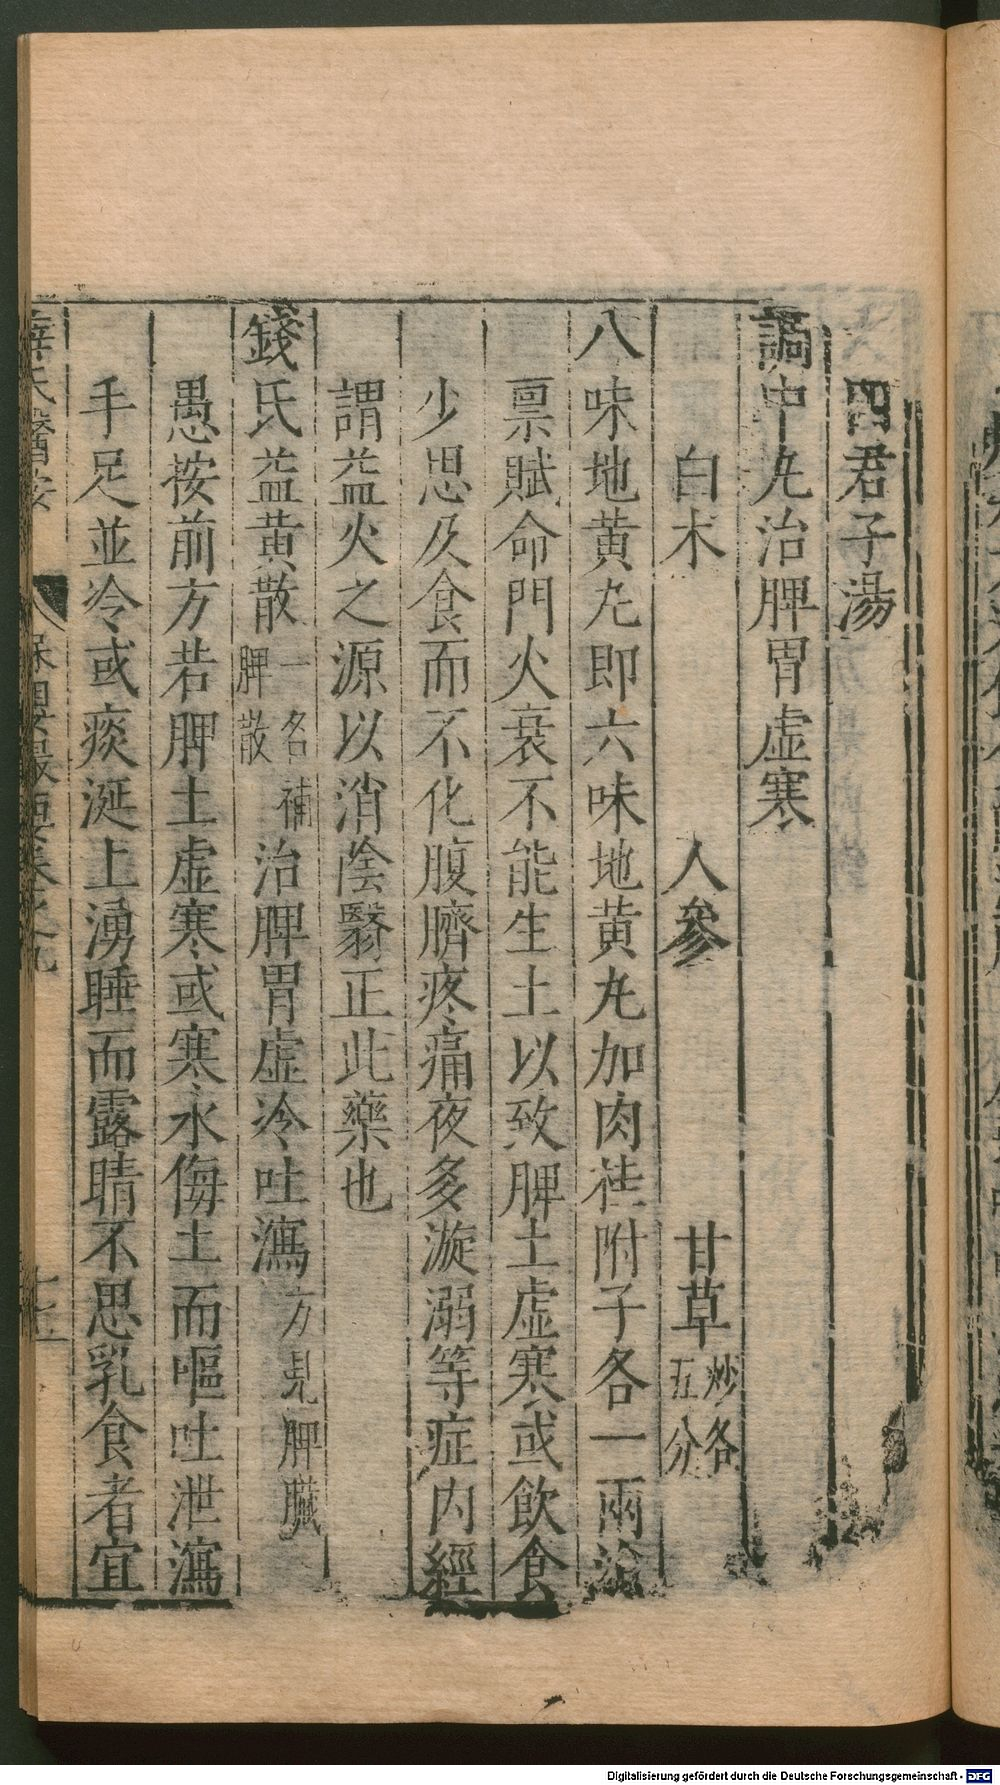 四君子湯
調中丸治脾胃虛寒
白朮 人參 甘草炒各五分
八味地黄丸即六味地黄丸加肉桂附子各一兩治
禀賦命門火衰不能生土以致脾土虛寒或飲食
少思及食而不化腹臍疼痛夜多漩溺等症内經
謂益火之源以消陰翳正此藥也
錢氏益黄散一名補脾散治脾胃虛冷吐瀉方見脾臟
愚按前方若脾土虛寒或寒水侮土而嘔吐泄瀉
手足並冷或痰涎上湧睡而露睛不思乳食者宜
Digitalisierung gefördert durch die Deutsche Forschungsgemeinschaft - DFG